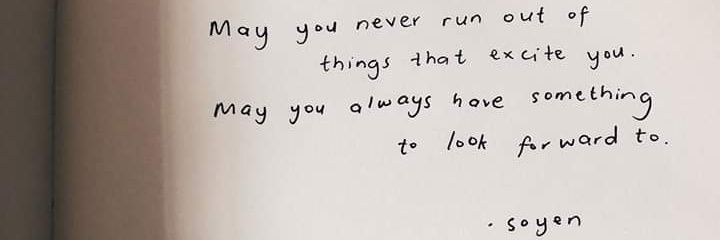 May you never run out of
things that excite you.
May you always have something
to look forward to.
. soyen